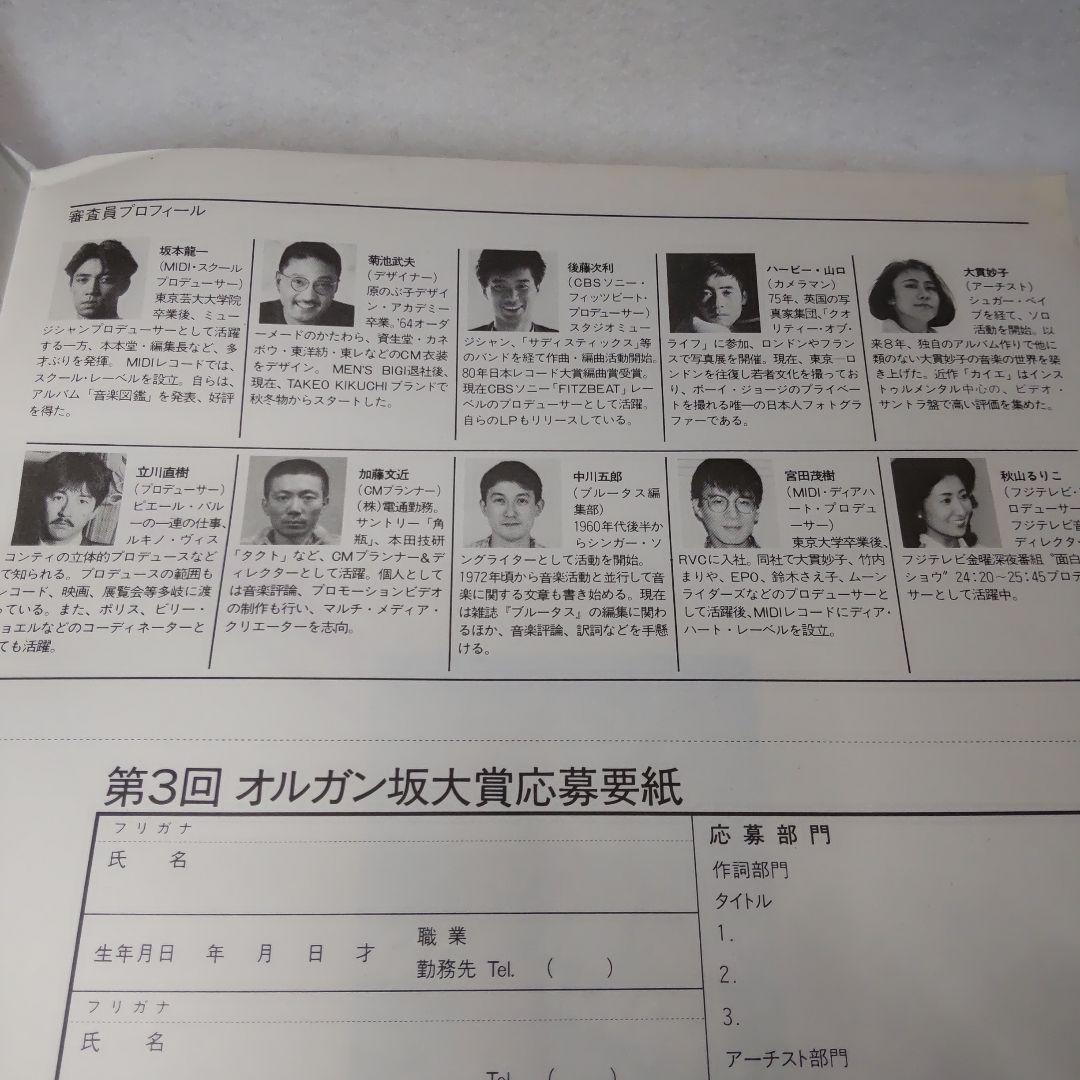 審査員プロフィール
坂本龍一
(MIDI・スクール
プロデューサー)
東京芸大大学院
卒業後、ミュー
ジシャンプロデューサーとして活躍
する一方、本本堂・編集長など、多
才ぶりを発揮。MIDIレコードでは、
スクール・レーベルを設立。自らは、
アルバム「音楽図鑑」を発表、好評
を得た。
菊池武夫
(デザイナー)
原のぶ子デザイ
ン・アカデミー
卒業。'64オーダ
ーメードのかたわら、資生堂・カネ
ボウ・東洋紡・東レなどのCM衣装
をデザイン。MEN'S BIGI退社後、
現在、TAKEO KIKUCHIブランドで
秋冬物からスタートした。
後藤次利
(CBSソニー・
フィッツビート・
プロデューサー)
スタジオミュー
ジシャン、「サディスティックス」等
のバンドを経て作曲・編曲活動開始。
80年日本レコード大賞編曲賞受賞。
現在CBSソニー「FITZBEAT」レー
ベルのプロデューサーとして活躍。
自らのLPもリリースしている。
ハービー・山口
(カメラマン)
75年、英国の写
真家集団、「クオ
リティー・オブ・
ライフ」に参加、ロンドンやフラン
スで写真展を開催。現在、東京―ロ
ンドンを往復し若者文化を撮ってお
り、ボーイ・ジョージのプライベー
トを撮れる唯一の日本人フォトグラ
ファーである。
大貫妙子
(アーチスト)
シュガー・ベイ
ブを経て、ソロ
活動を開始。以
来8年、独自のアルバム作りで他に
類のない大貫妙子の音楽の世界を築
き上げた。近作「カイエ」はインス
トゥルメンタル中心の、ビデオ・
サントラ盤で高い評価を集めた。
立川直樹
(プロデューサー)
ピエール・バル
ーの一連の仕事、
ルキノ・ヴィス
コンティの立体的プロデュースなど
で知られる。プロデュースの範囲も
レコード、映画、展覧会等多岐に渡
っている。また、ボリス、ビリー・
ョエルなどのコーディネーターと
ても活躍。
加藤文近
(CMプランナー)
(株)電通勤務。
サントリー「角
瓶」、本田技研
「タクト」など、CMプランナー&デ
ィレクターとして活躍。個人として
は音楽評論、プロモーションビデオ
の制作も行い、マルチ・メディア・
クリエーターを志向。
中川五郎
(ブルータス編
集部)
1960年代後半か
らシンガー・ソ
ングライターとして活動を開始。
1972年頃から音楽活動と並行して音
楽に関する文章も書き始める。現在
は雑誌『ブルータス』の編集に関わ
るほか、音楽評論、訳詞などを手懸
ける。
宮田茂樹
(MIDI・ディアハ
ート・プロデュ
ーサー)
東京大学卒業後、
RVCに入社。同社で大貫妙子、竹内
まりや、EPO、鈴木さえ子、ムーン
ライダーズなどのプロデューサーと
して活躍後、MIDIレコードにディア・
ハート・レーベルを設立。
秋山るりこ
(フジテレビ・
ロデューサー
フジテレビ音
ディレクター
フジテレビ金曜深夜番組“面白
ショウ”24:20〜25:45プロデ
サーとして活躍中。
第3回 オルガン坂大賞応募要紙
フリガナ
氏 名
生年月日 年 月 日 才
職業
勤務先 Tel. ( )
フリガナ
氏 名
Tel. ( )
応募部門
作詞部門
タイトル
1.
2.
3.
アーチスト部門